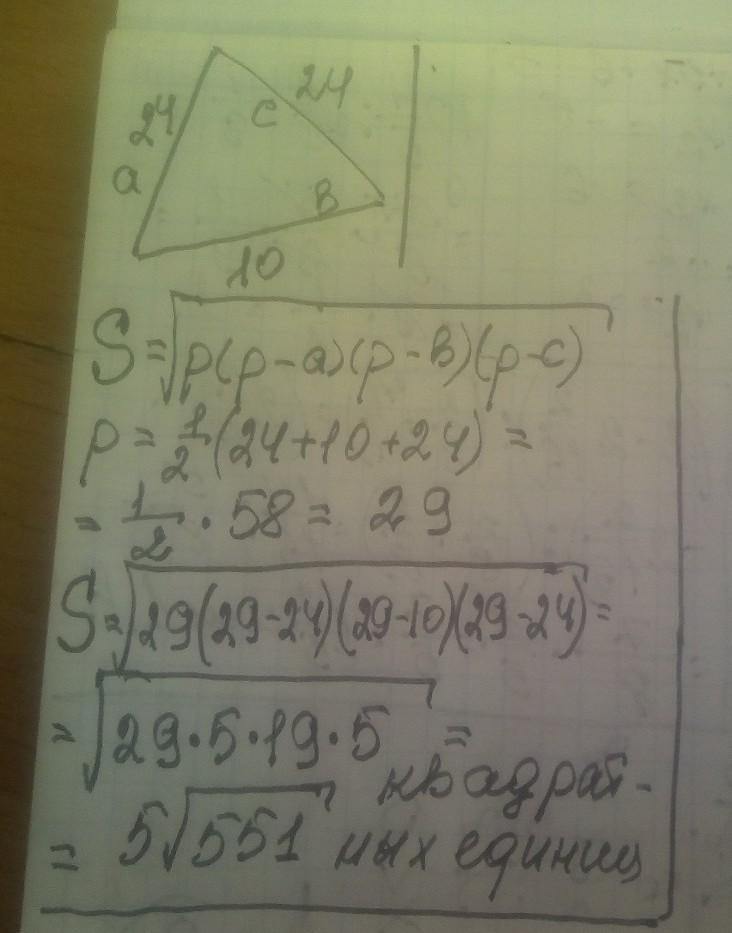 24
c
24
a
в
10
S=√p(p-a)(p-в)(p-c)
p = 1/2 (24+10+24) =
= 1/2 · 58 = 29
S=√29(29-24)(29-10)(29-24) =
= √29·5·19·5 =
= 5√551 квадрат-
ных единиц